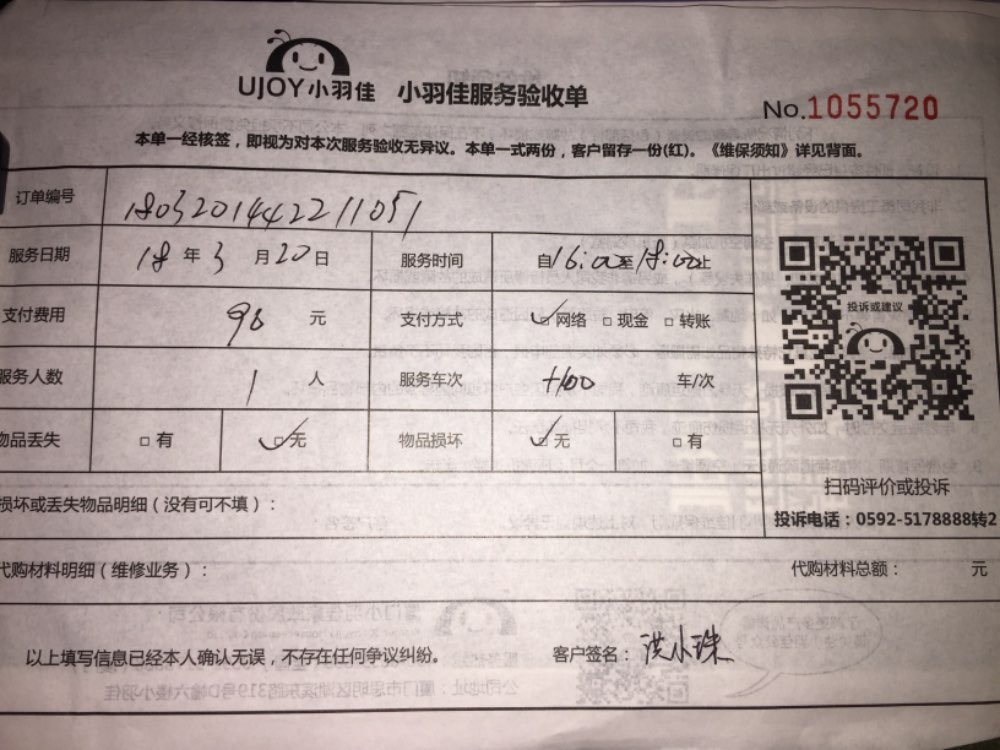 UJOY小羽佳 小羽佳服务验收单
No.1055720
本单一经核签，即视为对本次服务验收无异议。本单一式两份，客户留存一份(红)。《维保须知》详见背面。
订单编号 1803201442211051
服务日期 18 年 3 月 20 日 服务时间 自16:00至18:00止
支付费用 90 元 支付方式 网络 现金 转账
投诉或建议
服务人数 1 人 服务车次 车/次
物品丢失 有 无 物品损坏 无 有
扫码评价或投诉
损坏或丢失物品明细（没有可不填）：
投诉电话：0592-5178888转2
代购材料明细（维修业务）： 代购材料总额： 元
以上填写信息已经本人确认无误，不存在任何争议纠纷。 客户签名：洪小珠